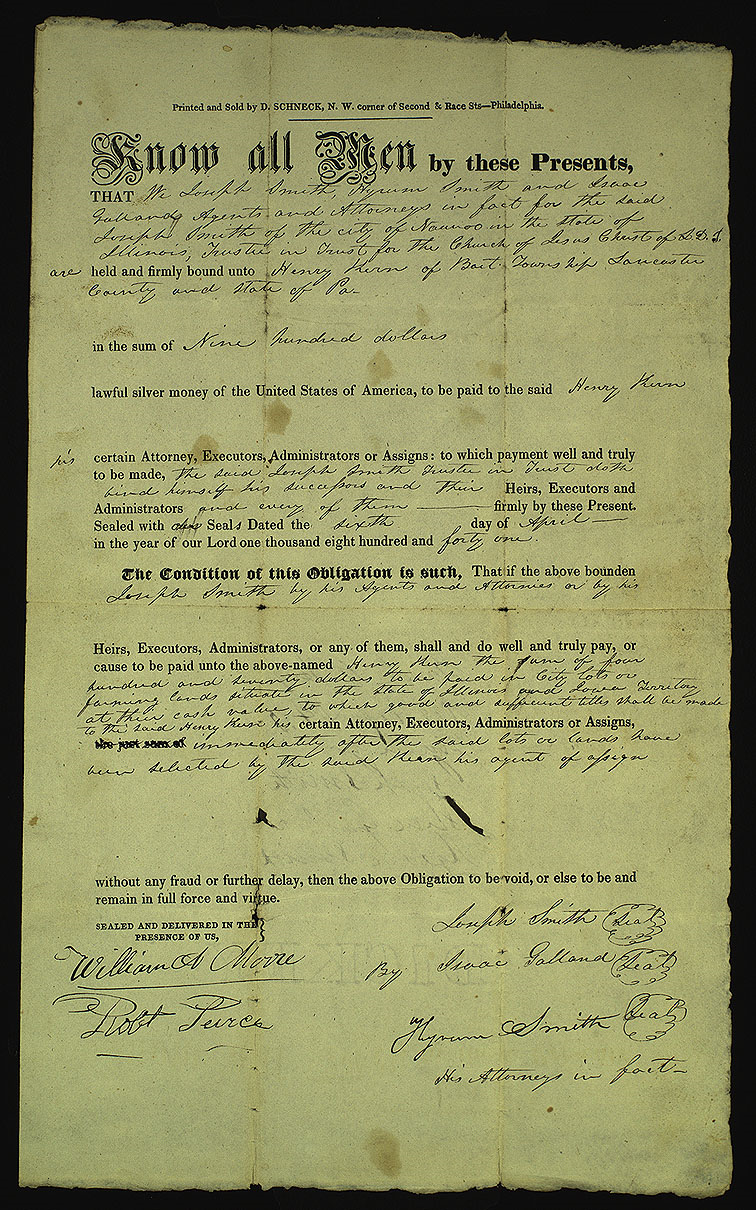 Printed and Sold by D. SCHNECK, N. W. corner of Second & Race Sts—Philadelphia.
Know all Men by these Presents,
THAT We Joseph Smith, Hyrum Smith and Isaac
Galland, Agents and Attorneys in fact for the said
Joseph Smith of the city of Nauvoo in the state of
Illinois, Trustee in Trust for the Church of Jesus Christ of L. D. S.
are held and firmly bound unto Henry Kern of Bart Township Lancaster
County and state of Pa-
in the sum of Nine hundred dollars
lawful silver money of the United States of America, to be paid to the said Henry Kern
his certain Attorney, Executors, Administrators or Assigns: to which payment well and truly
to be made, the said Joseph Smith Trustee in Trust doth
bind himself his successors and their Heirs, Executors and
Administrators and every of them firmly by these Present.
Sealed with our Seals Dated the sixth day of April
in the year of our Lord one thousand eight hundred and forty one.
The Condition of this Obligation is such, That if the above bounden
Joseph Smith by his Agents and Attornies or by his
Heirs, Executors, Administrators, or any of them, shall and do well and truly pay, or
cause to be paid unto the above-named Henry Kern the sum of four
hundred and seventy dollars to be paid in City lots or
farming lands situate in the state of Illinois and Iowa Territory
at their cash value, to which good and sufficient titles shall be made
to the said Henry Kern his certain Attorney, Executors, Administrators or Assigns,
the just sum of immediately after the said lots or lands have
been selected by the said Kern his agent of assign
without any fraud or further delay, then the above Obligation to be void, or else to be and
remain in full force and virtue.
SEALED AND DELIVERED IN THE
PRESENCE OF US,
Joseph Smith Seal
William A Moore
By Isaac Galland Seal
Robt Peirce
Hyrum Smith Seal
His Attorneys in fact-